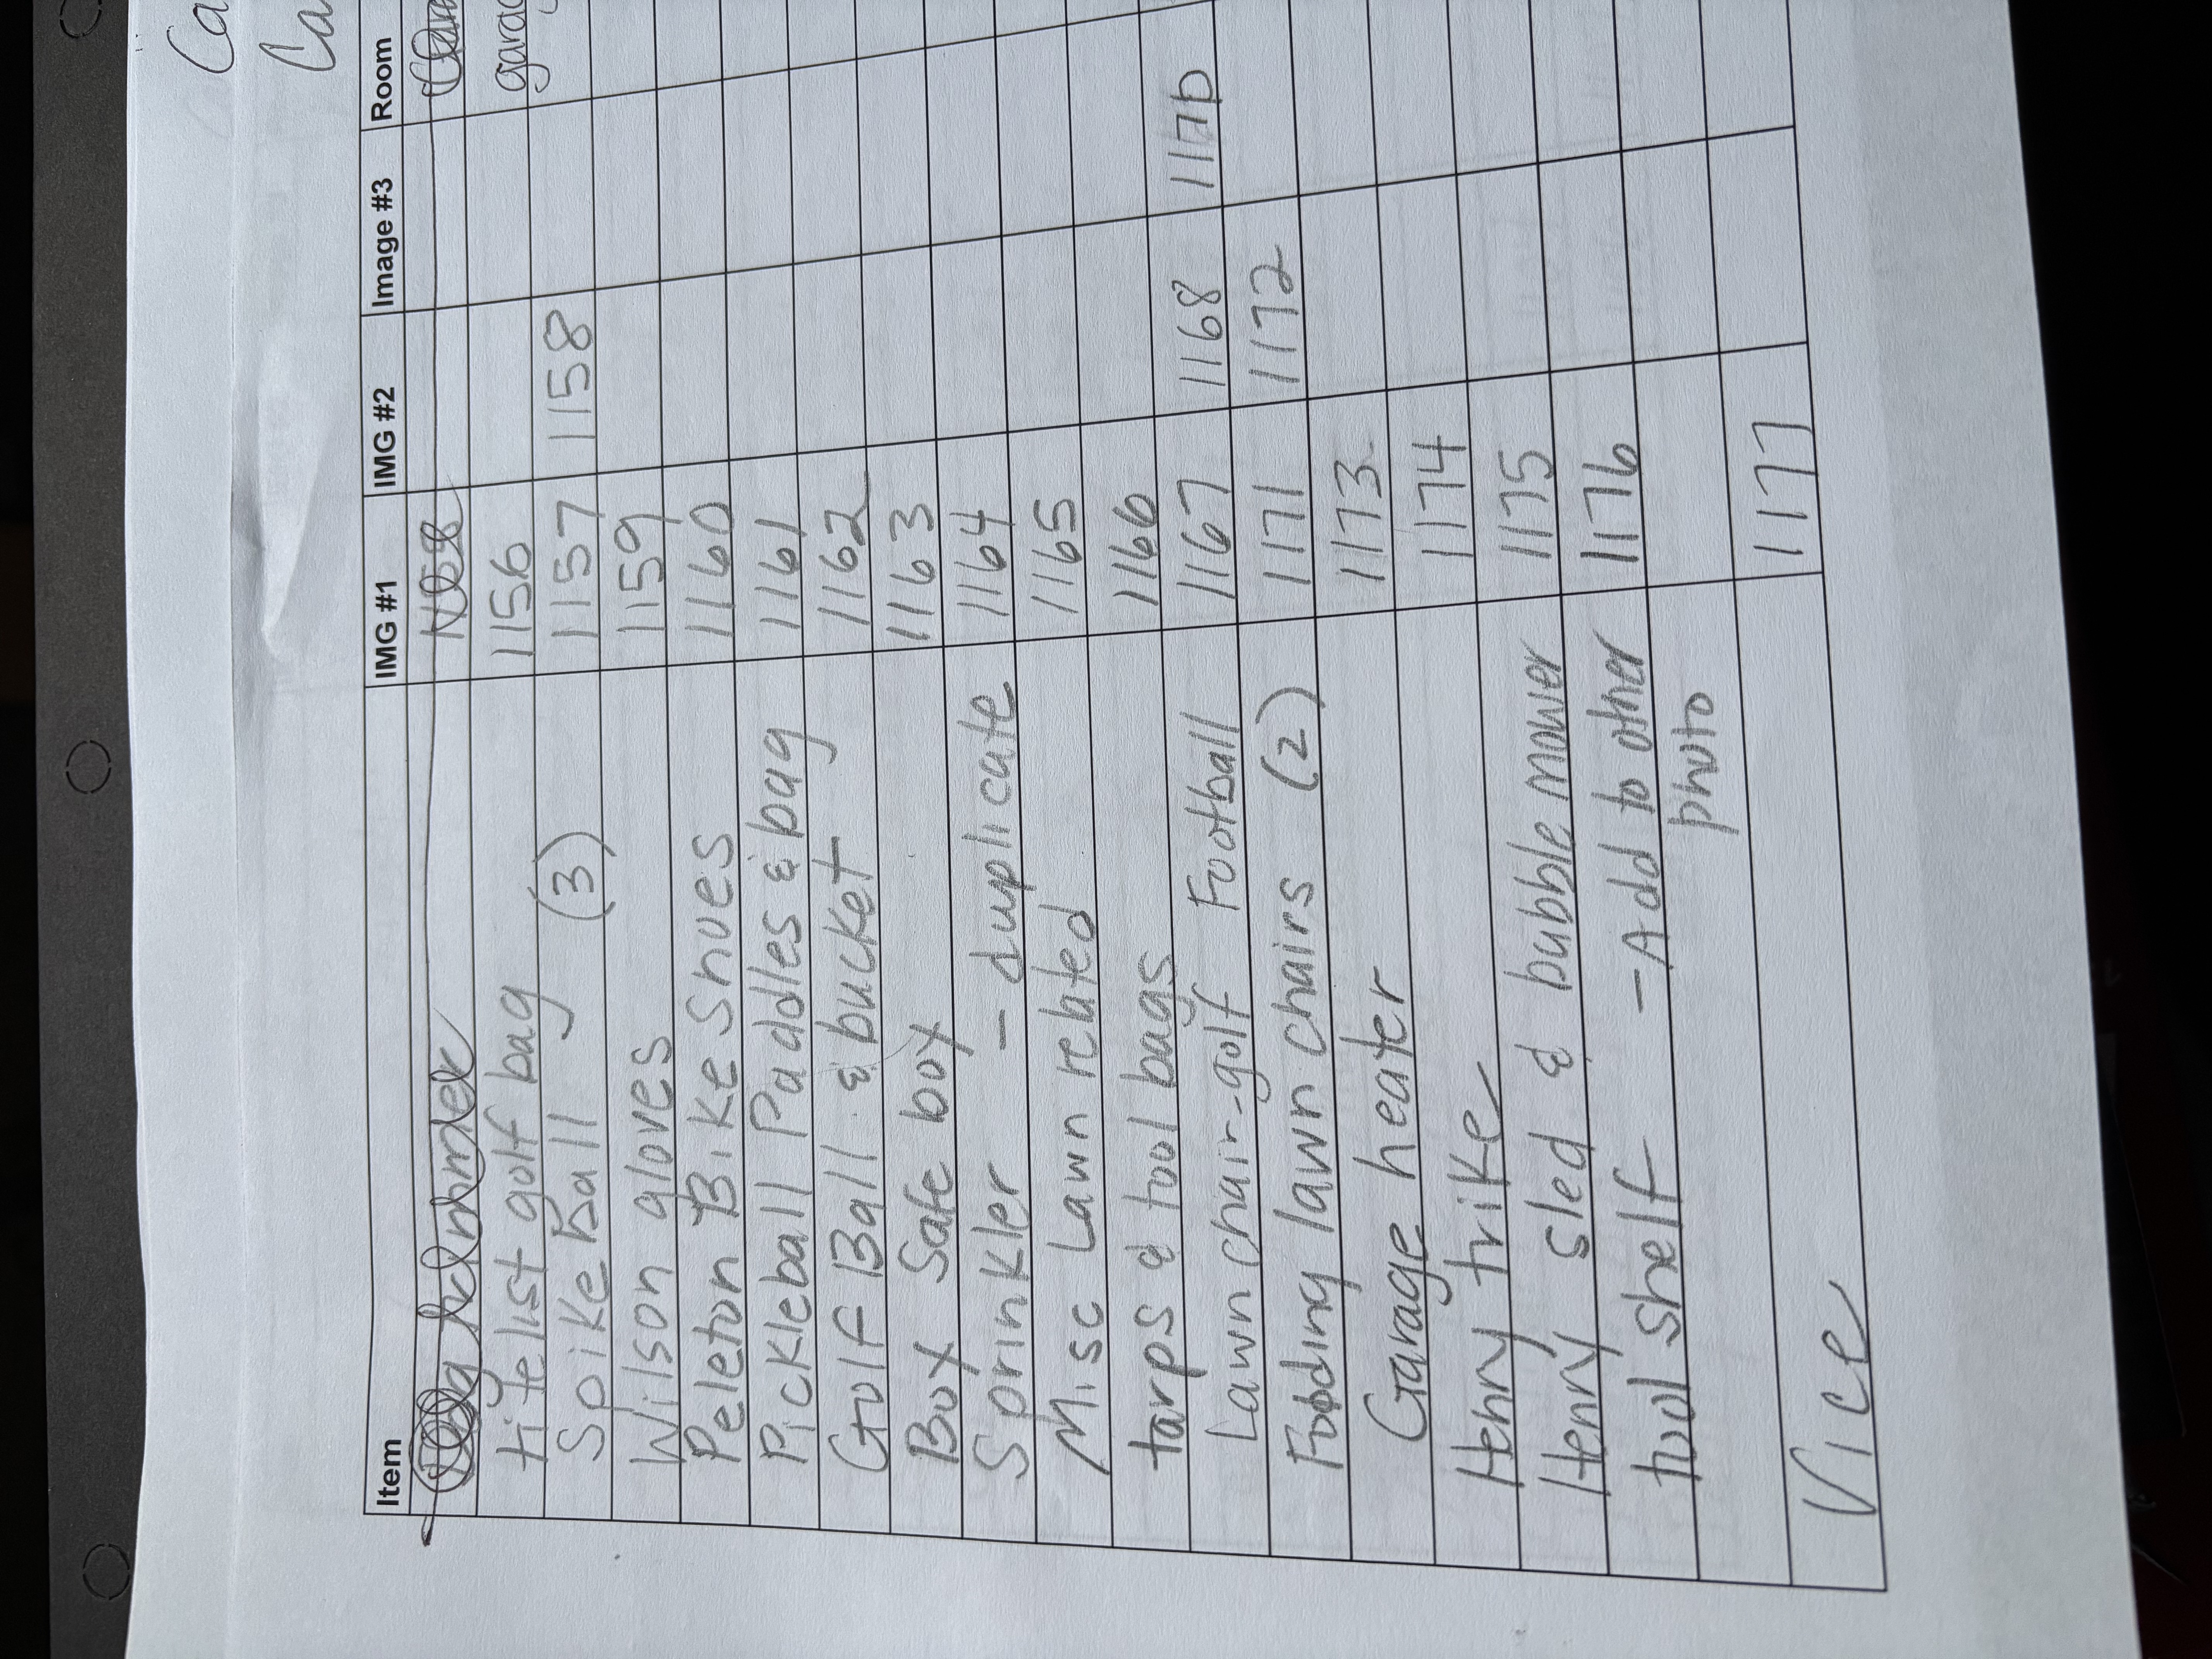 Ca
Ca
Item IMG #1 IMG #2 Image #3 Room
titelist golf bag 1156 garag
Spike Ball (3) 1157 1158
Wilson gloves 1159
Peleton Bike Shoes 1160
Pickleball Paddles & bag 1161
Golf Ball & bucket 1162
Box Safe box 1163
Sprinkler - duplicate 1164
Misc Lawn related 1165
tarps & tool bags 1166
Lawn chair-golf Football 1167 1168 1170
Folding lawn chairs (2) 1171 1172
Garage heater 1173
Henry trike 1174
Henry sled & bubble mower 1175
tool shelf - Add to other 1176
photo
Vice 1177